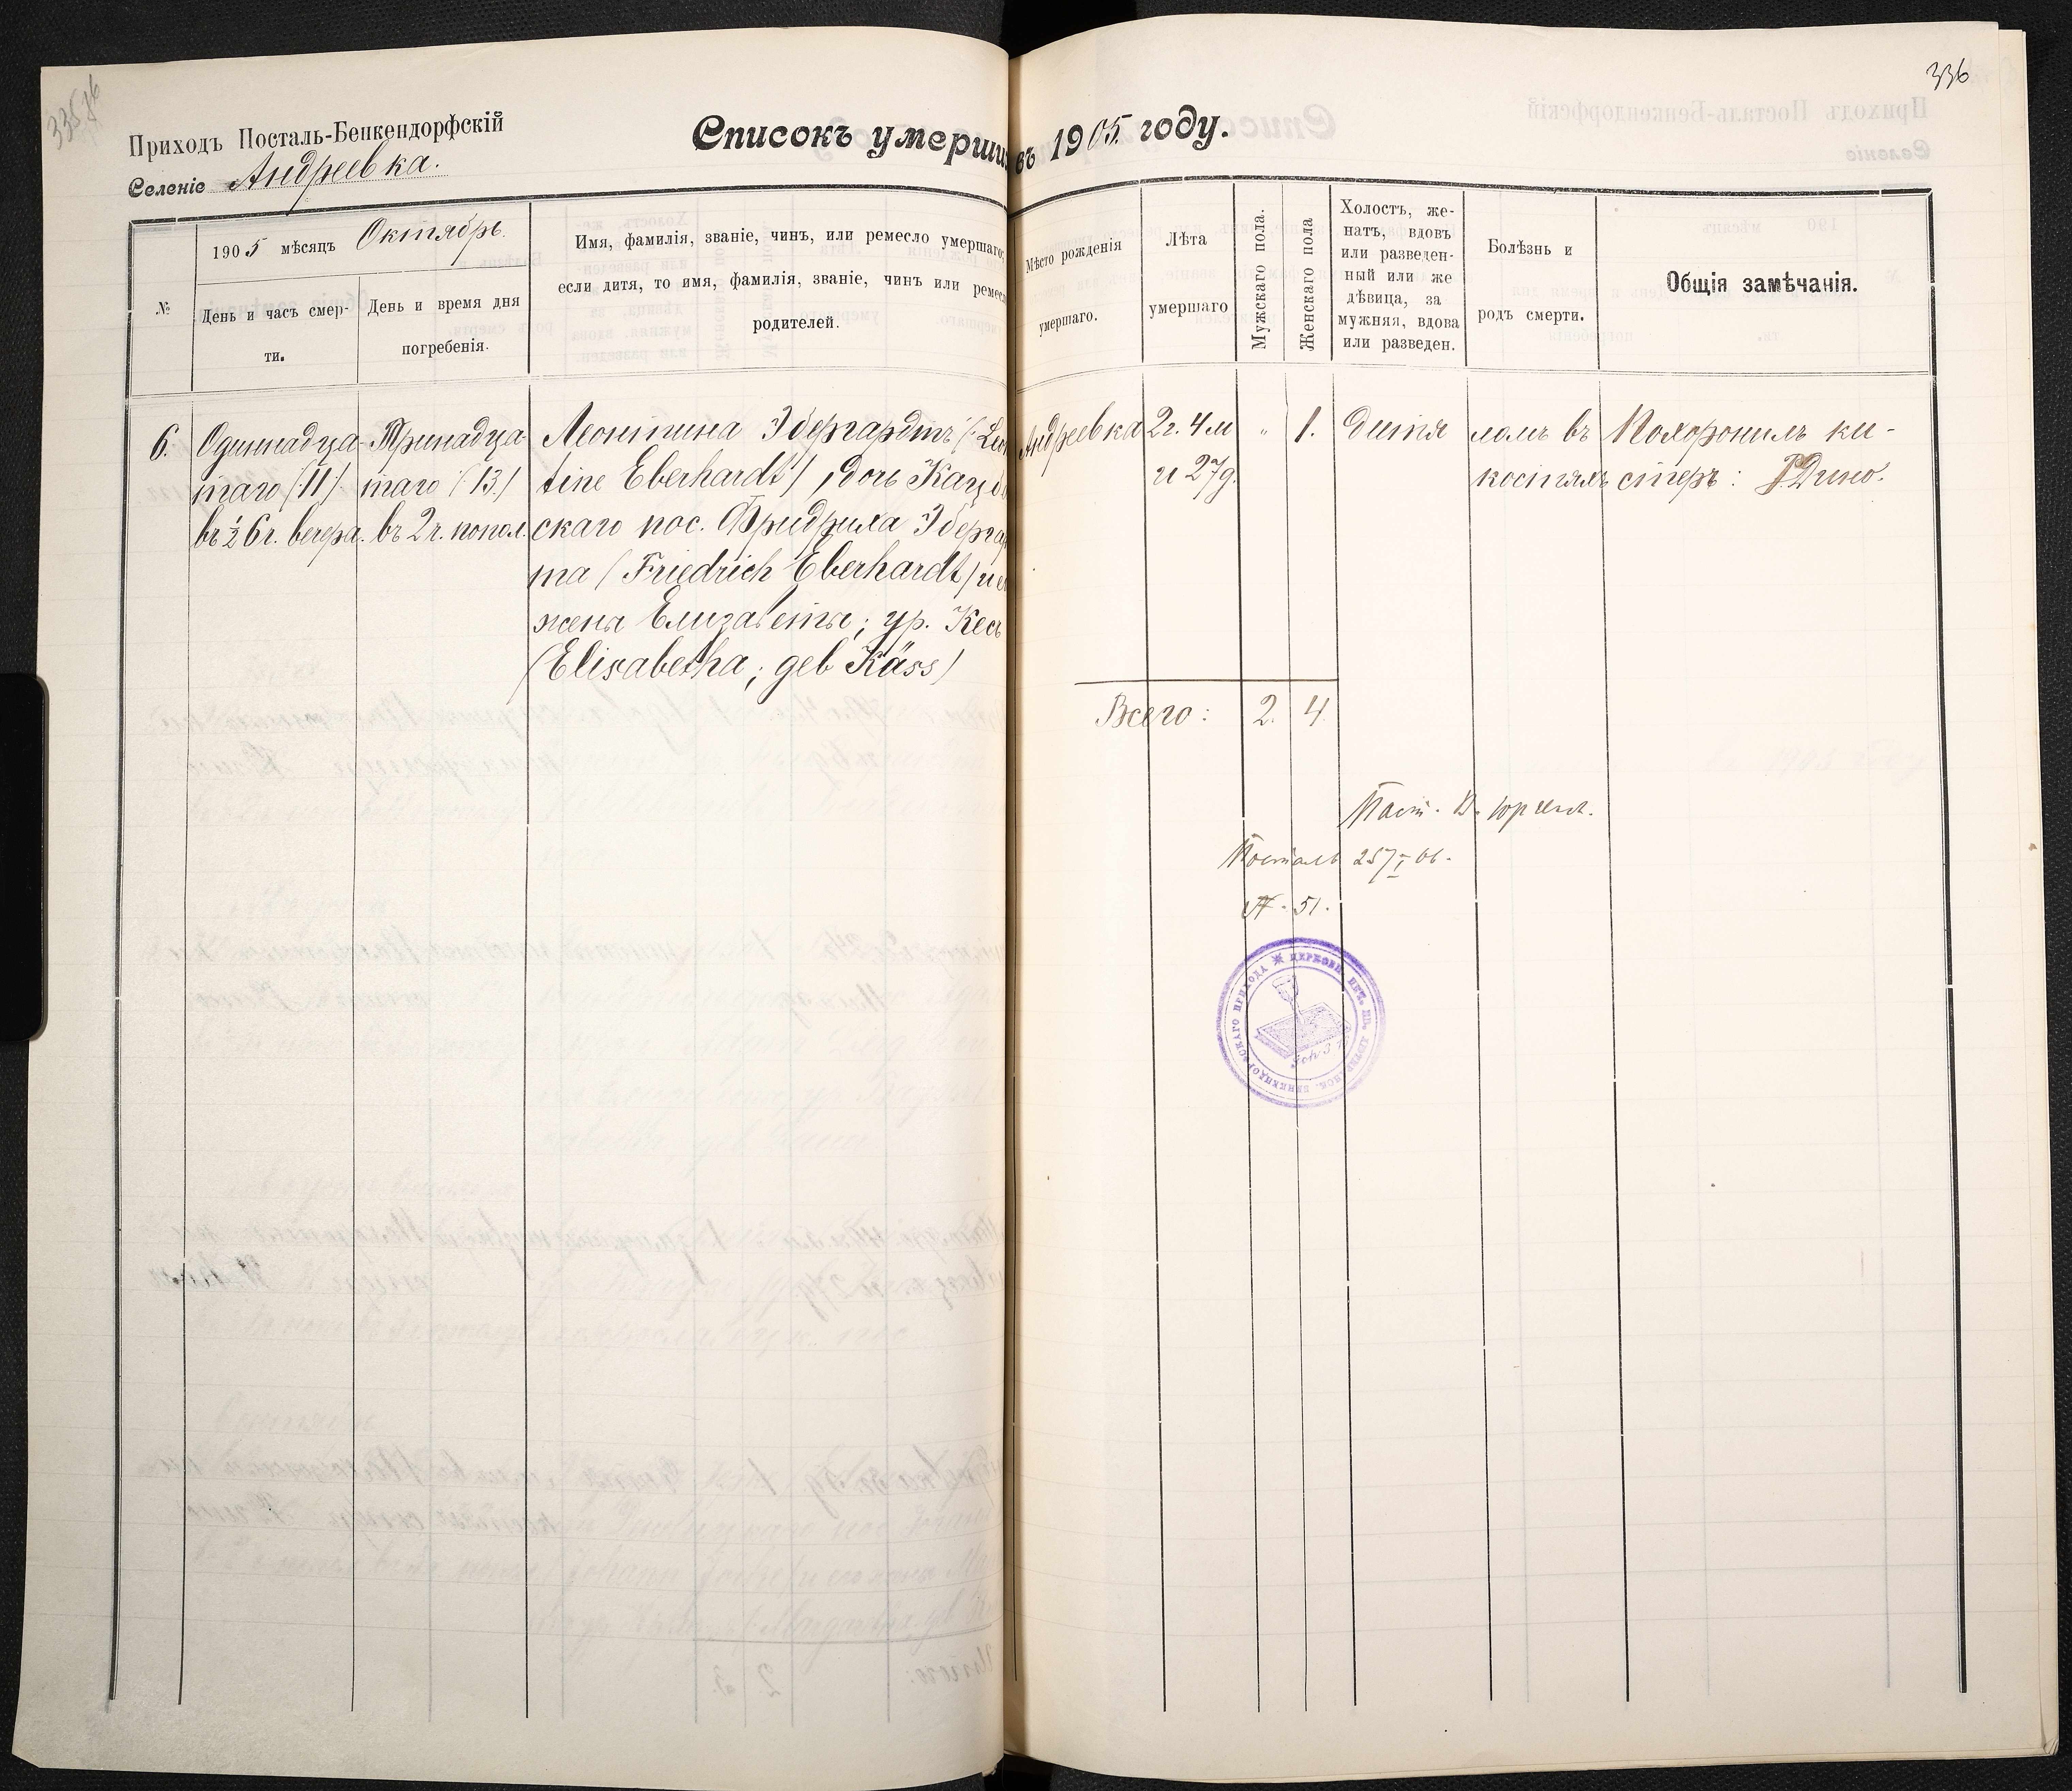 336
Приходъ Посталь-Бенкендорфскій
Селеніе Андреевка.
Списокъ умерши
въ 1905 году.
№
1905 мѣсяцъ Октябрь.
День и часъ смер-
ти.
День и время дня
погребенія.
Имя, фамилія, званіе, чинъ, или ремесло умершаго;
если дитя, то имя, фамилія, званіе, чинъ или ремесл
родителей.
Мѣсто рожденія
умершаго.
Лѣта
умершаго
Мужскаго пола.
Женскаго пола
Холостъ, же-
натъ, вдовъ
или разведен-
ный или же
дѣвица, за
мужняя, вдова
или разведен.
Болѣзнь и
родъ смерти.
Общія замѣчанія.
6.
Одиннадца-
таго /:11:/
въ ½ 6 ч. вечера.
Тринадца-
таго /:13:/
въ 2 ч. попол.
Леонтина Эбергардтъ /:Leon
tine Eberhardt/, дочь Кацб
скаго пос. Фридриха Эберга
та /Friedrich Eberhardt/ и е
жены Елизаветы; ур. Кесъ
/Elisabetha; geb Käss/
Андреевка
2 г. 4 м
и 27 д.
"
1.
дитя
ломъ въ
костяхъ
Похоронилъ ки-
стеръ:
Всего: 2. 4.
Паст.
Посталь 25/I 06.
№. 51.
ЦЕРКОВН. ПЕЧ.
ПРИХОДА